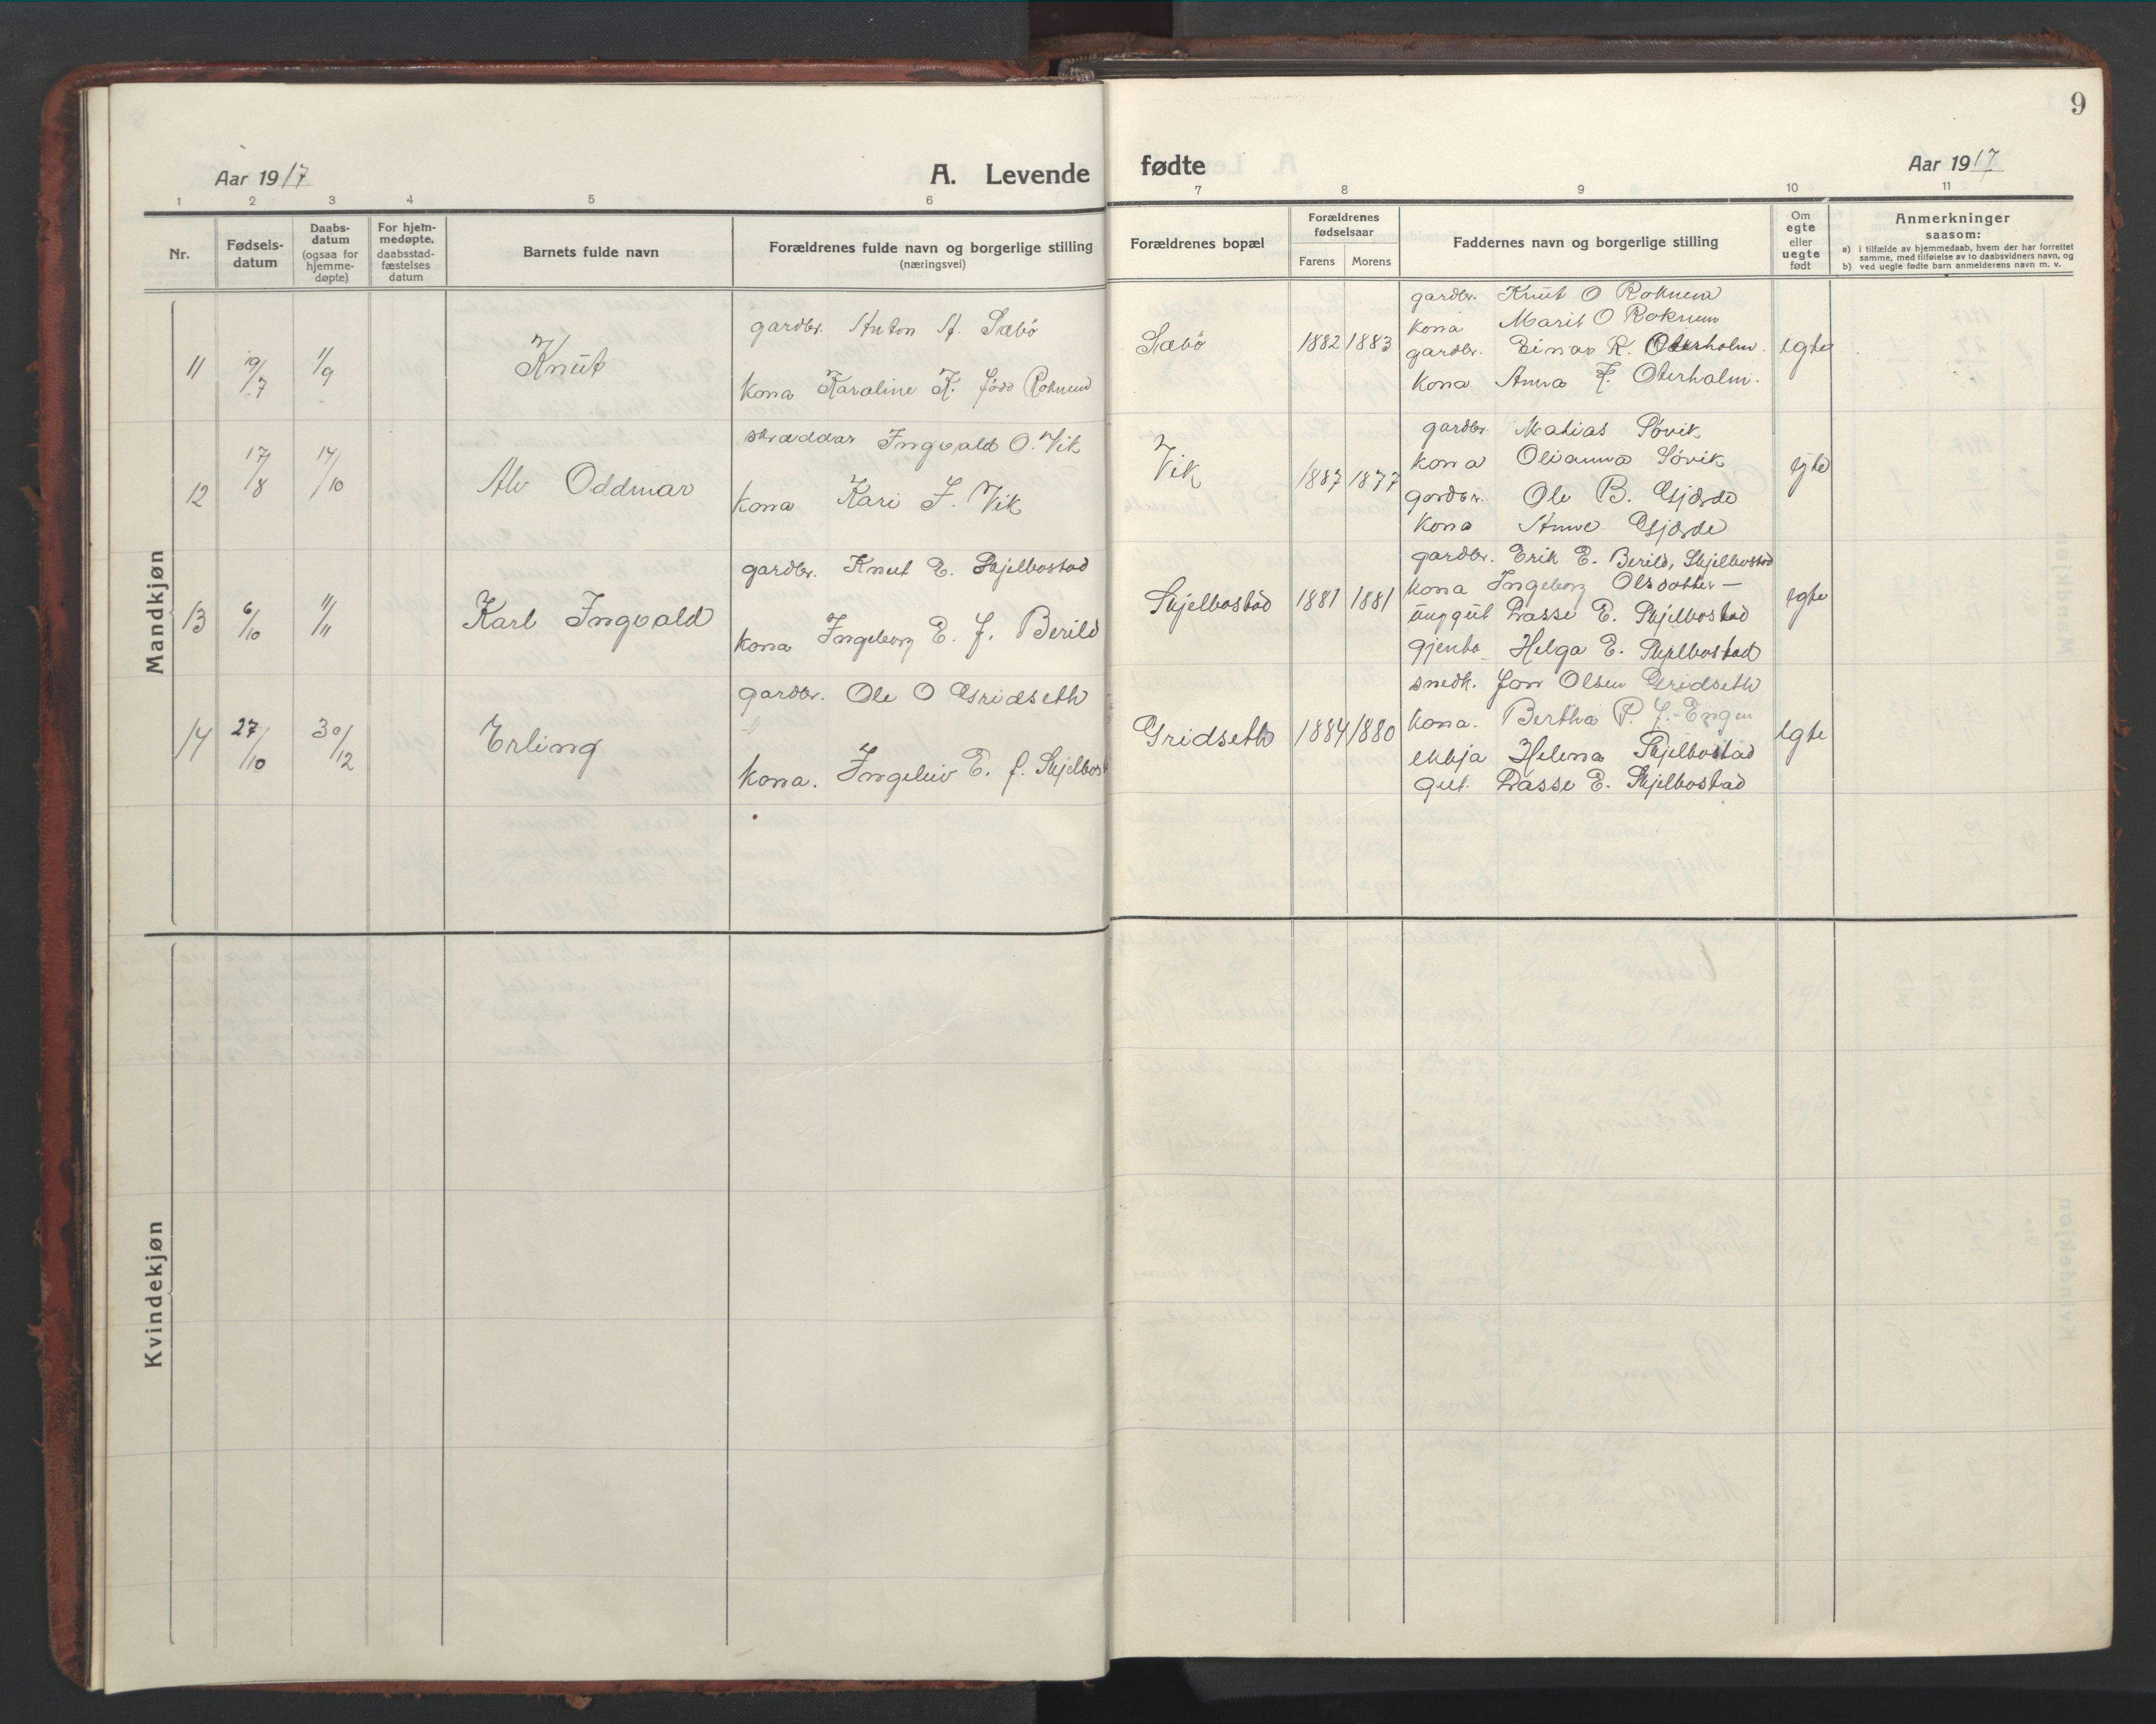 9
Aar 1917
A. Levende fødte
Aar 1917
1 2 3 4 5 6 7 8 9 10 11
Nr.
Fødsels-
datum
Daabs-
datum
(ogsaa for
hjemme-
døpte)
For hjem-
medøpte,
daabsstad-
fæstelses
datum
Barnets fulde navn
Forældrenes fulde navn og borgerlige stilling
(næringsvei)
Forældrenes bopæl
Forældrenes
fødselsaar
Farens Morens
Faddernes navn og borgerlige stilling
Om
egte
eller
uegte
født
Anmerkninger
saasom:
a) i tilfælde av hjemmedaab, hvem der har forrettet
samme, med tilføielse av to daabsvidners navn, og
b) ved uegte fødte barn anmelderens navn m. v.
Mandkjøn
11 19/7 11/9 Knut
gardbr. Anton A. Sæbö
kona Karaline K. född Roknem
Sæbö 1882 1883
gardbr. Knut O Roknem
kona Marit O Roknem
gardbr. Einar K. Oterholm.
kona Anna F. Oterholm.
egte
12 17/8 14/10 Alv Oddmar
skræddar Ingvald O. Vik
kona Kari J. Vik
Vik 1887 1877
gardbr Matias Sövik
kona Olianna Sövik
gardbr. Ole B. Gjærde
kona Anne Gjærde
egte
13 6/10 11/11 Karl Ingvald
gardbr. Knut E. Skjelbostad
kona Ingeborg E. f. Berild
Skjelbostad 1881 1881
gardbr. Erik E. Berild, Skjelbostad
kona Ingeborg Olsdotter —
unggut Lasse E. Skjelbostad
gjenta Helga E. Skjelbostad
egte
14 27/10 30/12 Erling
gardbr. Ole O Gridseth
kona. Ingeleiv E. f. Skjelbost
Gridseth 1884 1880
snedk. Jon Olsen Gridseth
kona. Bertha P. f. Engen
ekkja Helena Skjelbostad
gut. Lasse E. Skjelbostad
egte
Kvindekjøn